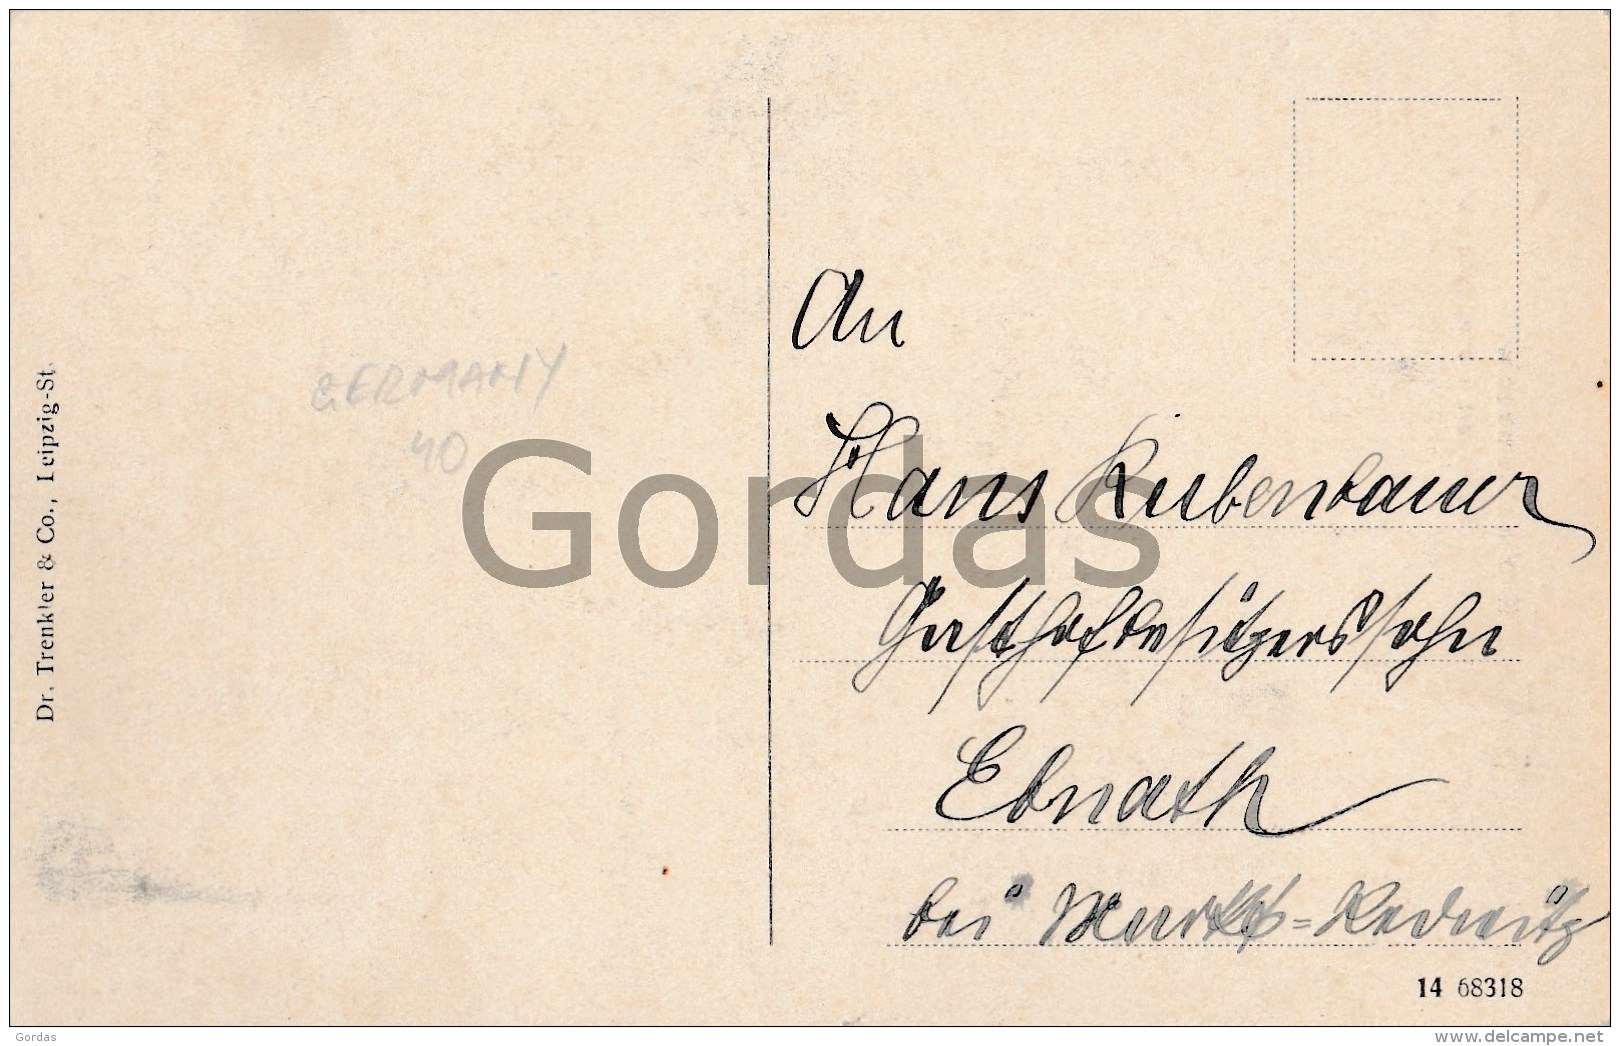 Dr. Trenkler & Co., Leipzig-St.
GERMANY
40
An
Hans Kubenbauer
Gasthofbesitzerssohn
Ebnath
bei Markt=Redwitz
14 68318
Gordas
Gordas
www.delcampe.net